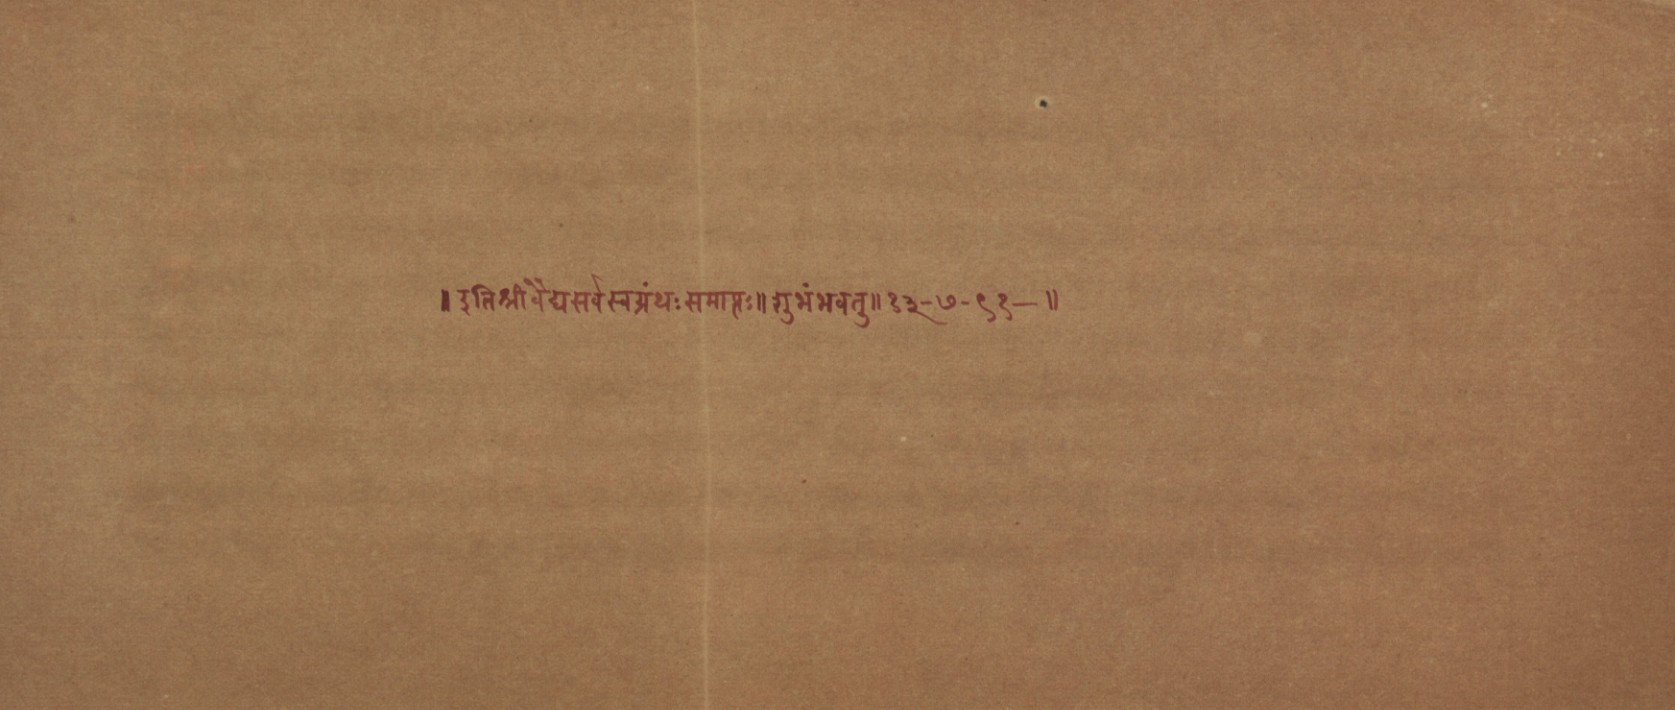 ॥ इति श्री वैद्यसर्वस्वग्रंथः समाप्तः ॥ शुभं भवतु ॥ १३-७-९१— ॥